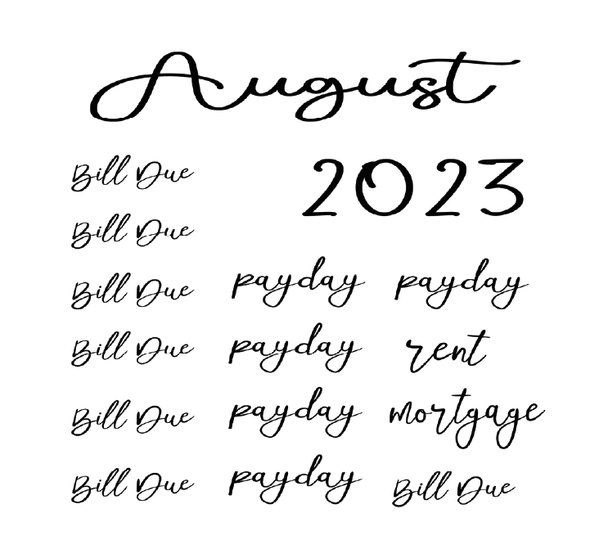 August
Bill Due 2023
Bill Due
Bill Due payday payday
Bill Due payday rent
Bill Due payday mortgage
Bill Due payday Bill Due